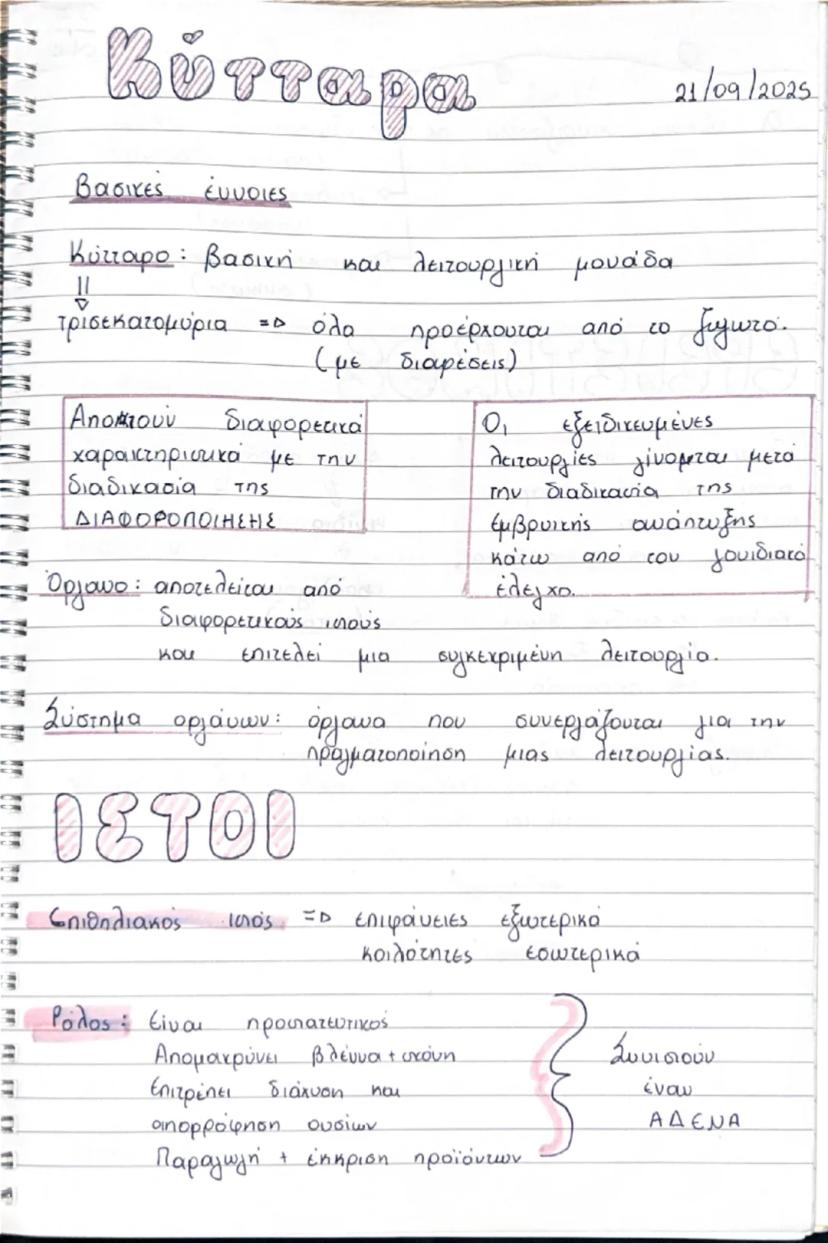 Κύτταρα
21/09/2025
Βασικές έννοιες
Κύτταρο: βασική και λειτουργική μονάδα
τρισεκατομύρια => όλα προέρχονται από το ζυγωτό.
(με διαρέσεις)
Αποκτούν διαφορετικά
χαρακτηριστικά με την
διαδικασία της
ΔΙΑΦΟΡΟΠΟΙΗΣΗΣ
Οι εξειδικευμένες
λειτουργίες γίνονται μετά
την διαδικασία της
εμβρυικής ανάπτυξης
κάτω από τον γονιδιακό
έλεγχο.
Όργανο: αποτελείται από
διαφορετικούς ιστούς
και επιτελεί μια συγκεκριμένη λειτουργία.
Σύστημα οργάνων: όργανα που συνεργάζονται για την
πραγματοποίηση μιας λειτουργίας.
ΙΣΤΟΙ
Επιθηλιακός ιστός => επιφάνειες εξωτερικά
κοιλότητες εσωτερικά
Ρόλος: Είναι προστατευτικός
Απομακρύνει βλέννα + σκόνη
Επιτρέπει διάχυση και
απορρόφηση ουσιών
Παραγωγή + έκκριση προϊόντων
Συνιστούν
έναν
ΑΔΕΝΑ